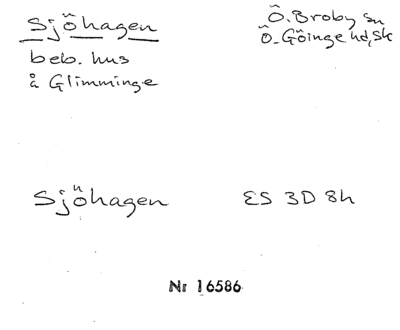 Sjöhagen
Ö. Broby sn
Ö. Göinge hd, Sk
beb. hus
å Glimminge
Sjöhagen
ES 3D 8h
Nr 16586